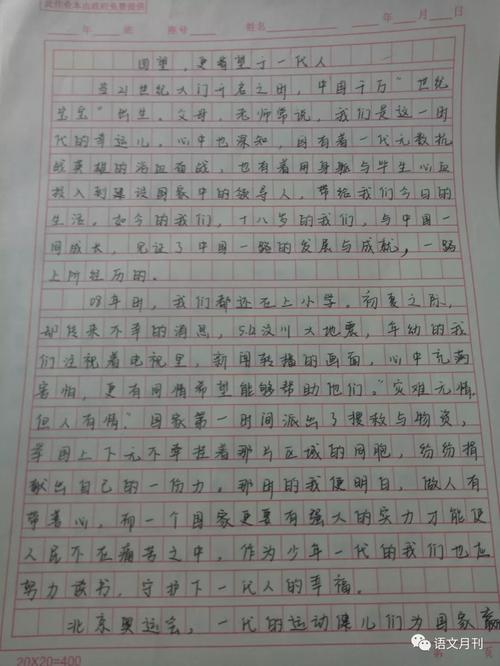 此作业本由政府免费提供
年 班 座号 姓名 年 月 日
回望,更希望于一代人
当21世纪大门千名之时,中国千万“世纪
宝宝”出生。父母,老师常说,我们是这一时
代的幸运儿。心中也深知,因有着一代无数抗
战英雄的浴血奋战,也有着用身躯与毕生心血
投入到建设国家中的领导人,带给我们今日的
生活。如今的我们,十八岁的我们,与中国一
同成长,见证了中国一路的发展与成就,一路
上所经历的。
08年时,我们都还在上小学。初夏之际,
却传来不幸的消息,5.12汶川大地震,年幼的我
们注视着电视里,新闻转播的画面,心中充满
害怕,更有同情希望能够帮助他们。“灾难无情
但人有情”国家第一时间派出了搜救与物资,
举国上下无不牵挂着那片区域的同胞,纷纷捐
献出自己的一份力。那时的我便明白,做人有
带善心,而一个国家更要有强大的实力才能使
人民不在痛苦之中,作为少年一代的我们也应
努力读书,守护下一代人的幸福。
北京奥运会,一代的运动健儿们为国家赢
20X20=400
第 页
语文月刊